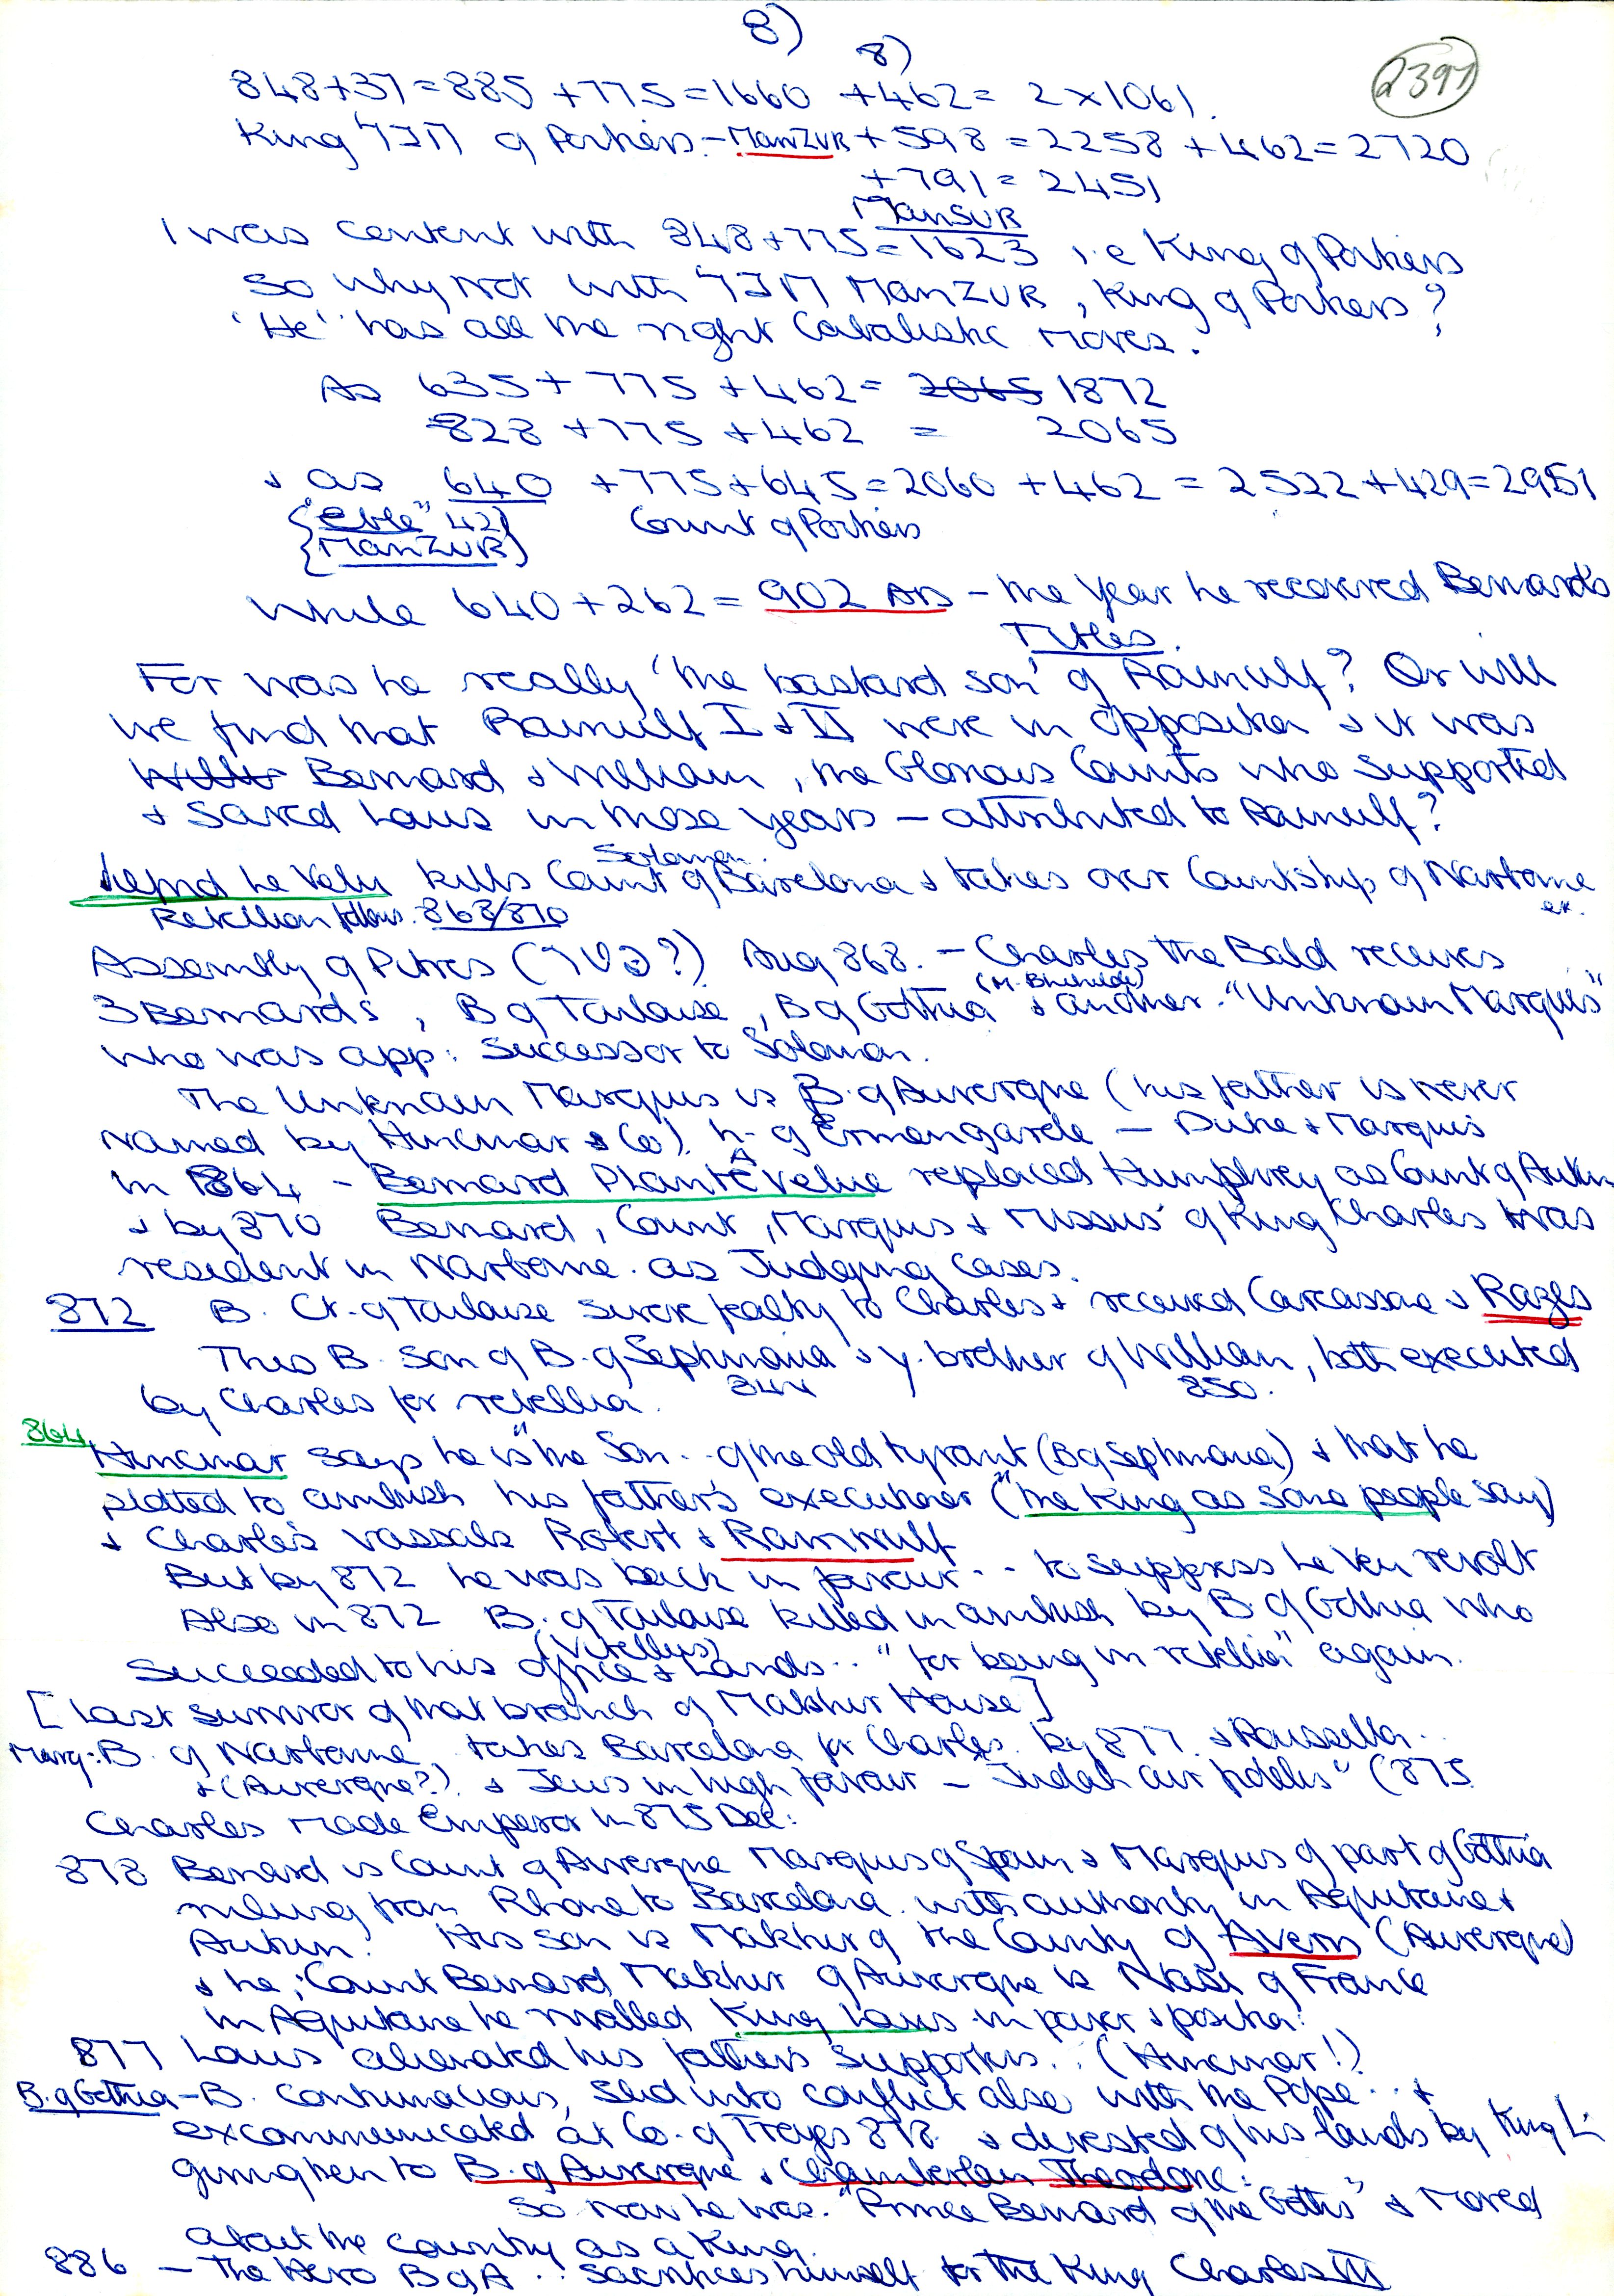 8)
8)
2397
848+37=885 +775=1660 +462= 2x1061.
King of Poitiers.- ManZUR + 598 = 2258 +462=2720
+791= 2451
ManSUR
I was content with 848+775=1623 i.e King of Poitiers
So why not with ManZUR, King of Poitiers?
'He' has all the right Cabalistic Moves.
As 635+ 775 +462= 2065 1872
828 +775 +462 = 2065
+ as 640 +775+645=2060 +462 = 2522+429=2951
{"Eble" 42} Count of Poitiers
{ManZUR}
While 640+262= 902 AD - the Year he recovered Bernard's
Titles.
For was he really 'the bastard son' of Rainulf? Or will
we find that Rainulf I & II were in opposition & it was
Bernard & William, the Glorious Counts who supported
& saved Louis in those years - attributed to Rainulf?
Lefnd le Velu kills Count Solomon of Barcelona & takes over Countship of Narbonne
Rebellion follows. 868/870 etc.
Assembly of Pitres ( ?) Aug 868. - Charles the Bald receives
3 Bernards, B of Toulouse, B of Gothia (M. Blichilde) & another - "Unknown Marquis"
who was app: Successor to Solomon.
The Unknown Marquis is B. of Auvergne (his father is never
named by Hincmar & Co). h. of Ermengarde - Duke & Marquis
in 864 - Bernard Plantevelue replaced Humphrey as Count of Autun
& by 870 Bernard, Count, Marquis & Missus of King Charles was
resident in Narbonne. as Judging Cases.
872 B. Ct. of Toulouse swore fealty to Charles & received Carcassone & Razes
This B. son of B. of Septimania & y. brother of William, both executed
844 850.
by Charles for rebellion.
864 Hincmar says he is "the Son.. of the old tyrant (B of Septimania) & that he
plotted to ambush his father's executioner ("the King as some people say)
& Charles's vassals Robert & Ramnulf
But by 872 he was back in favour.. to suppress le Velu revolt
Also in 872 B. of Toulouse killed in ambush by B. of Gothia who
(Vitellus)
succeeded to his office & Lands.. "for being in rebellion" again.
[Last survivor of that branch of Makhir House]
Marq: B. of Narbonne, takes Barcelona for Charles. by 877. & Roussellon..
& (Auvergne?) & Jews in high favour - "Judah our fidelis" (875
Charles made Emperor in 875 Dec:
878 Bernard is Count of Auvergne Marquis of Spain & Marquis of part of Gothia
ruling from Rhone to Barcelona. with authority in Aquitaine &
Autun. His son is Makhir of the County of Avern (Auvergne)
& he; Count Bernard Makhir of Auvergne is Nasi of France
in Aquitaine he rivalled King Louis in power & position!
877 Louis alienated his father's supporters.. (Hincmar!)
B. of Gothia - B. contumacious, slid into conflict also with the Pope.. &
excommunicated at Co. of Troyes 878. & divested of his lands by King L:
giving them to B. of Auvergne & Chamberlain Theodoric:
So now he was. "Prince Bernard of the Goths" & moved
about the country as a King.
886 - The Hero B of A .. Sacrifices himself for the King Charles III